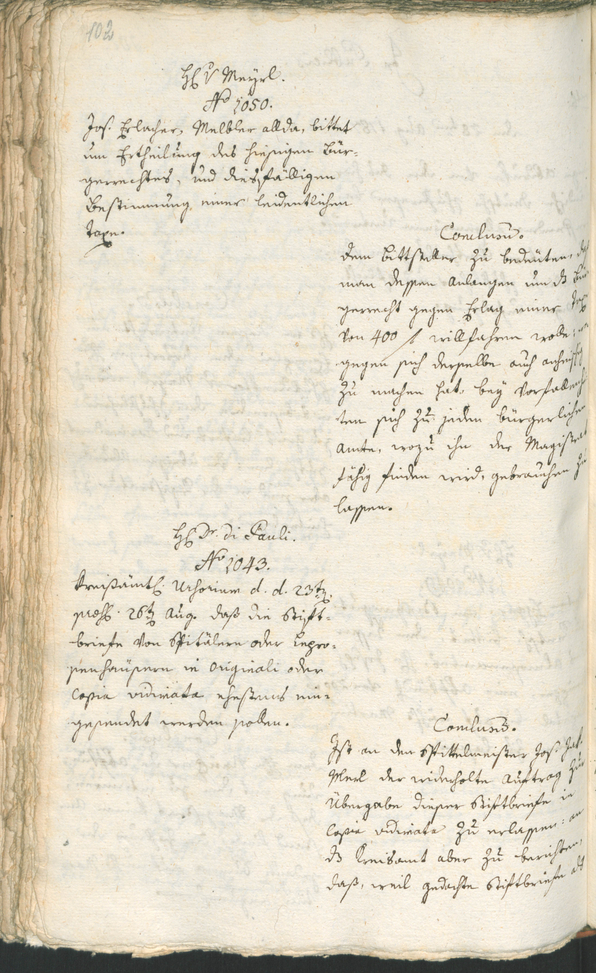 102
H. v Meyrl.
No 1050.
Jos. Erlacher, Melbler allda, bittet
um Ertheilung des hiesigen Bür-
gerrechtes, und diesfälligen
Bestimmung einer leidentlichen
Taxe.
Conclusum.
dem Bittsteller zu bedeuten, daß
man dessen Anlangen um ds Bür-
gerrecht gegen Erlag einer Taxe
von 400 f willfahren wolle;
gegen sich derselbe auch anheischig
zu machen hat, bey Vorfallenhei-
ten sich zu jedem bürgerlichen
Amte, wozu ihn der Magistrat
fähig finden wird, gebrauchen zu
lassen.
H. Dr. di Pauli.
No 1043.
Kreisämtl. d. d. 23ten
26ten Aug. daß die Stift-
briefe von Spitälern oder Lepro-
sienhäusern in Originali oder
Copia vidimata ehestens ein-
gesendet werden sollen.
Conclusum.
Ist an den Spittelmeister Jos. Jak.
der widerholte Auftrag zur
Übergabe dieser Stiftbriefe in
Copia vidimata zu erlassen: an
ds Kreisamt aber zu berichten,
daß, weil gedachte Stiftbriefe